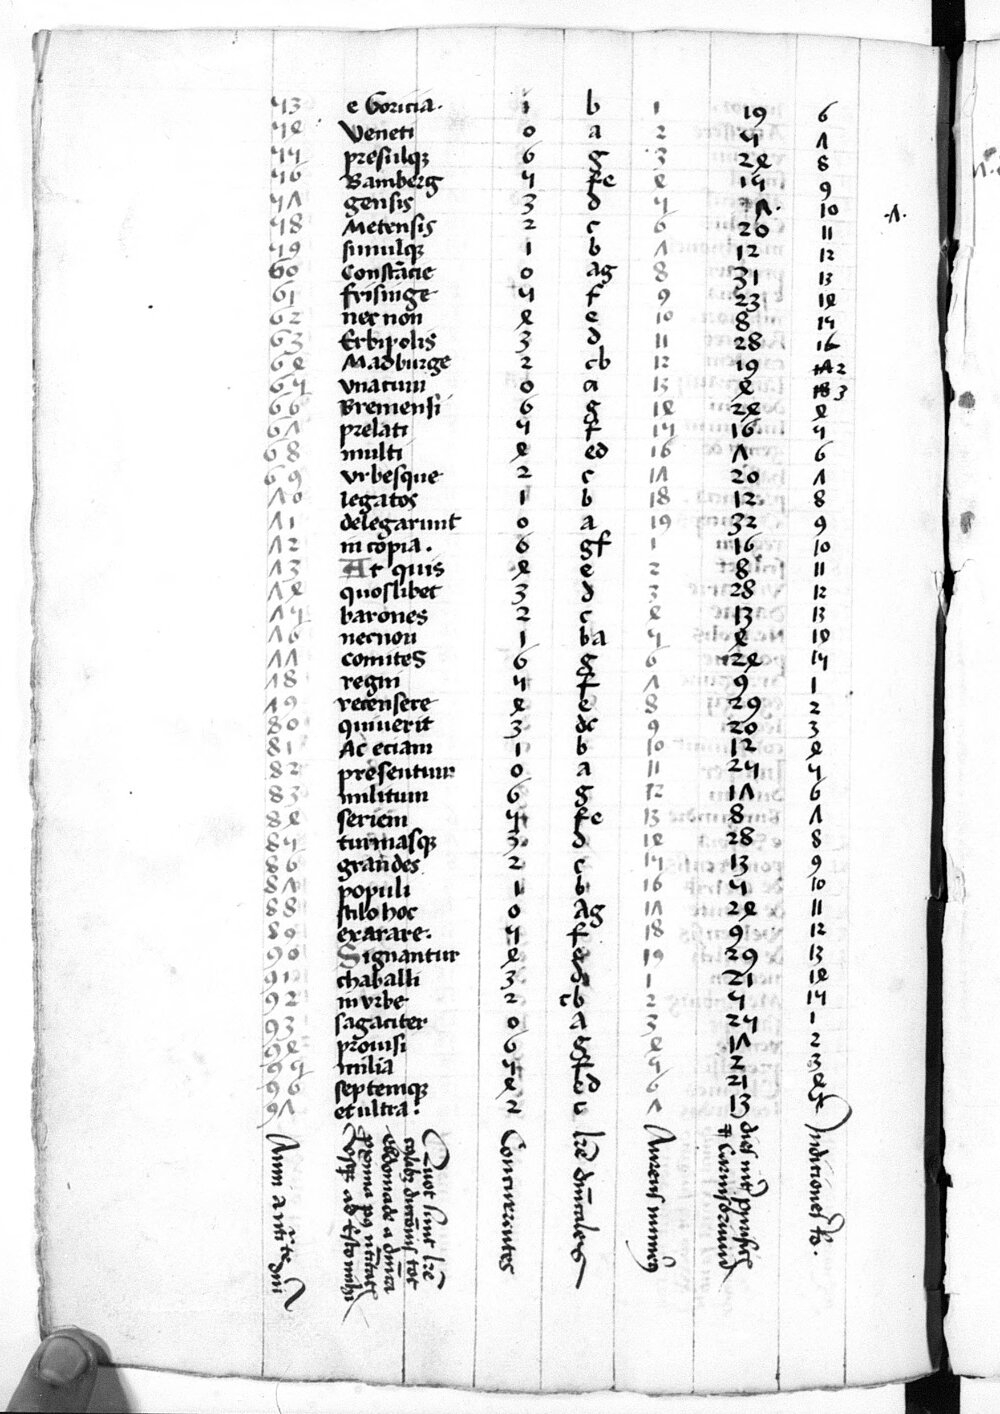 53 e Goricia. 1 b 1 19 6
54 Veneti 0 a 2 5 7
55 presulqꝫ 6 g 3 24 8
56 Bamberg 5 fe 4 15 9
57 gensis 3 d 5 7. 10 .7.
58 Metensis 2 c 6 20 11
59 simulqꝫ 1 b 7 12 12
60 Constācie 0 ag 8 31 13
61 frisinge 5 f 9 23 14
62 nec non 4 e 10 8 15
63 Erbipolis 3 d 11 28 16
64 Madburge 2 cb 12 19 17 2
65 vnatum 0 a 13 4 18 3
66 Bremensi 6 g 14 24 4
67 prelati 5 f 15 16 5
68 multi 4 ed 16 7 6
69 vrbesque 2 c 17 20 7
70 legatos 1 b 18 12. 8
71 delegarunt 0 a 19 32 9
72 in copia. 6 gf 1 16 10
73 At quis 4 e 2 8 11
74 quoslibet 3 d 3 28 12
75 barones 2 c 4 13 13
76 necnon 1 ba 5 4 14
77 comites 6 g 6 24 15
78 regni 5 f 7 9 1
79 recensere 4 e 8 29 2
80 quiuerit 3 dc 9 20 3
81 Ac eciam 1 b 10 12 4
82 presentum 0 a 11 25 5
83 militum 6 g 12 17 6
84 seriem 5 fe 13 8 7
85 turmasqꝫ 3 d 14 28 8
86 grandes 2 c 15 13 9
87 populi 1 b 16 5 10
88 stilo hoc 0 ag 17 24 11
89 exarare. 5 f 18 9 12
90 Signantur 4 e 19 29 13
91 chaballi 3 d 1 21 14
92 in vrbe 2 cb 2 5 15
93 sagaciter 0 a 3 25 1
94 prouisi 6 g 4 17 2
95 milia 5 f 5 2 3
96 septemqꝫ 4 ed 6 21 4
97 et ultra. 2 c 7 13 5
Anni
Quot sunt lr̄e
tot
ebdomade a
vsqꝫ ad Estomihi
Concurrentes
lr̄e dn̄icales
Aureus numerꝯ
dies
Indictiones